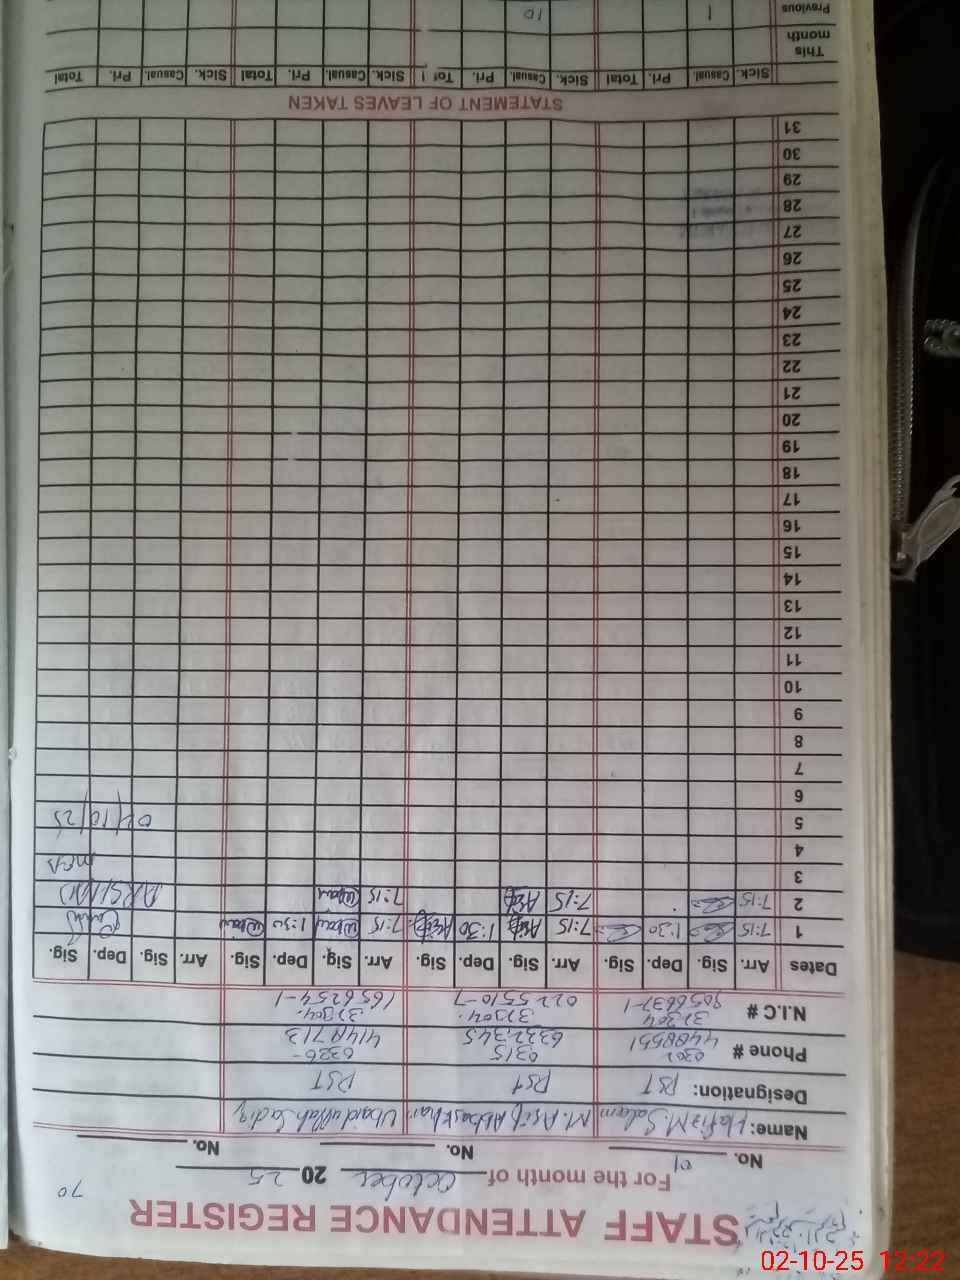 STAFF ATTENDANCE REGISTER
70
For the month of October 20 25
No. 01 No. No.
Name: Hafiz M. Salam M. Asif Abbas Khan Ubaidullah Sadiq
Designation: PST PST PST
Phone # 0302 0315 0326-
4488551 6332345 4148713
N.I.C # 31304 31304- 31304-
9056637-1 0225510-7 1656254-1
Dates Arr. Sig. Dep. Sig. Arr. Sig. Dep. Sig. Arr. Sig. Dep. Sig. Arr. Sig. Dep. Sig.
1 7:15 1:30 7:15 Asif 1:30 Asif 7:15 1:30
2 7:15 7:15 Asif 7:15
3 MEA
4
5 02/10/25
6
7
8
9
10
11
12
13
14
15
16
17
18
19
20
21
22
23
24
25
26
27
28
29
30
31
STATEMENT OF LEAVES TAKEN
Sick. Casual. Pri. Total Sick. Casual. Pri. Tot Sick. Casual. Pri. Total Sick. Casual. Pri. Total
This
month
Previous 1 10
02-10-25 12:22